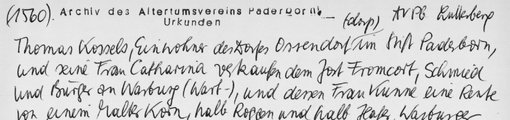 (1560). Archiv des Altertumsvereins Paderborn – (dorp), AVPb Rulleberg
Urkunden
Thomas Kossels, Einwohner des Dorfes Ossendorf im Stift Paderborn,
und seine Frau Catharina verkaufen dem Jost Fromcort, Schmied
und Bürger zu Warburg (Wart-), und dessen Frau Kunne eine Rente
von einem Malter Korn, halb Roggen und halb Hafer, Warburger